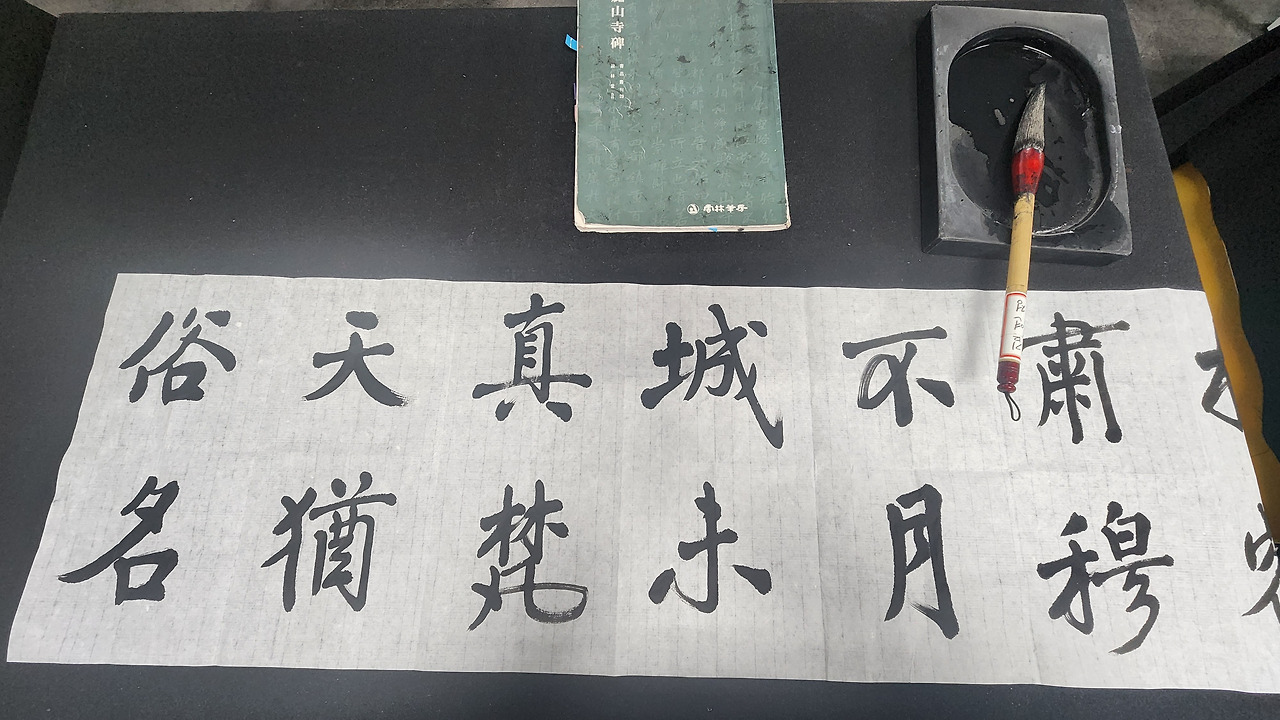 麓山寺碑
雲林筆房
肅穆
不月
城未
真梵
天猶
俗名